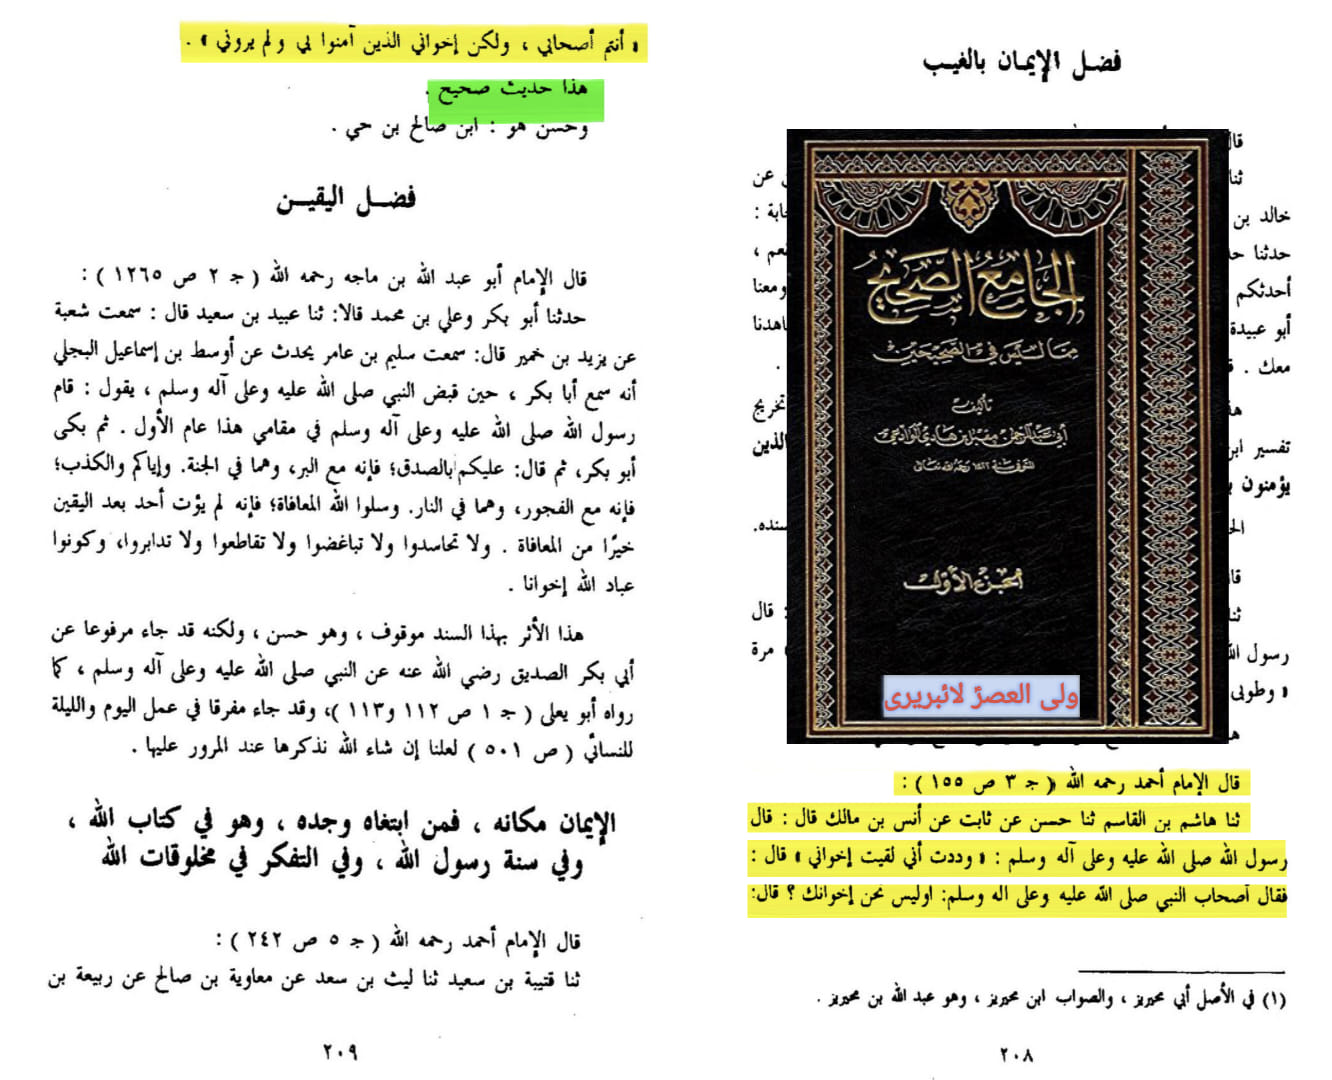 فضل الإيمان بالغيب
قال
ثنا
ن عن
خالد بن
حابة :
حدثنا
قعم ،
أحدثكم
ومعنا
أبو عبيدة
اهدنا
معك .
تخريج
تفسير ابن
الذين
يؤمنون
سنده.
ثنا
: قال
رسول الله
مرة
« وطوبى
الجامع الصحيح
مما ليس في الصحيحين
تأليف
أبي عبد الرحمن مقبل بن هادي الوادعي
المتوفى سنة ١٤٢٢ رحمه الله تعالى
الجزء الأول
ولی العصرؑ لائبریری
قال الإمام أحمد رحمه الله ( جـ ٣ ص ١٥٥ ) :
ثنا هاشم بن القاسم ثنا حسن عن ثابت عن أنس بن مالك قال : قال
رسول الله صلى الله عليه وعلى آله وسلم : « وددت أني لقيت إخواني » قال :
فقال أصحاب النبي صلى الله عليه وعلى اله وسلم: اوليس نحن إخوانك ؟ قال:
(١) في الأصل أبي محيريز ، والصواب ابن محيريز ، وهو عبد الله بن محيريز .
٢٠٨
« أنتم أصحابي ، ولكن إخواني الذين آمنوا بي ولم يروني » .
هذا حديث صحيح .
وحسن هو : ابن صالح بن حي .
فضل اليقين
قال الإمام أبو عبد الله بن ماجه رحمه الله ( جـ ٢ ص ١٢٦٥ ) :
حدثنا أبو بكر وعلي بن محمد قالا: ثنا عبيد بن سعيد قال : سمعت شعبة
عن يزيد بن خمير قال: سمعت سليم بن عامر يحدث عن أوسط بن إسماعيل البجلي
أنه سمع أبا بكر ، حين قبض النبي صلى الله عليه وعلى آله وسلم ، يقول : قام
رسول الله صلى الله عليه وعلى آله وسلم في مقامي هذا عام الأول . ثم بكى
أبو بكر، ثم قال: عليكم بالصدق؛ فإنه مع البر، وهما في الجنة. وإياكم والكذب؛
فإنه مع الفجور، وهما في النار. وسلوا الله المعافاة؛ فإنه لم يؤت أحد بعد اليقين
خيرًا من المعافاة . ولا تحاسدوا ولا تباغضوا ولا تقاطعوا ولا تدابروا، وكونوا
عباد الله إخوانا .
هذا الأثر بهذا السند موقوف ، وهو حسن ، ولكنه قد جاء مرفوعا عن
أبي بكر الصديق رضي الله عنه عن النبي صلى الله عليه وعلى آله وسلم ، كما
رواه أبو يعلى ( جـ ١ ص ١١٢ و١١٣ )، وقد جاء مفرقا في عمل اليوم والليلة
للنسائي ( ص ٥٠١ ) لعلنا إن شاء الله نذكرها عند المرور عليها .
الإيمان مكانه ، فمن ابتغاه وجده ، وهو في كتاب الله ،
وفي سنة رسول الله ، وفي التفكر في مخلوقات الله
قال الإمام أحمد رحمه الله ( جـ ٥ ص ٢٤٢ ) :
ثنا قتيبة بن سعيد ثنا ليث بن سعد عن معاوية بن صالح عن ربيعة بن
٢٠٩